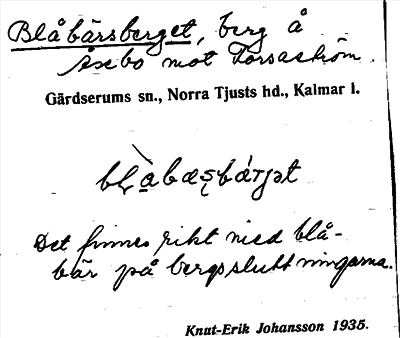 Blåbärsberget, berg å
Åsebo mot Forsaström.
Gärdserums sn., Norra Tjusts hd., Kalmar l.
Det finnes rikt med blå-
bär på bergssluttningarna.
Knut-Erik Johansson 1935.